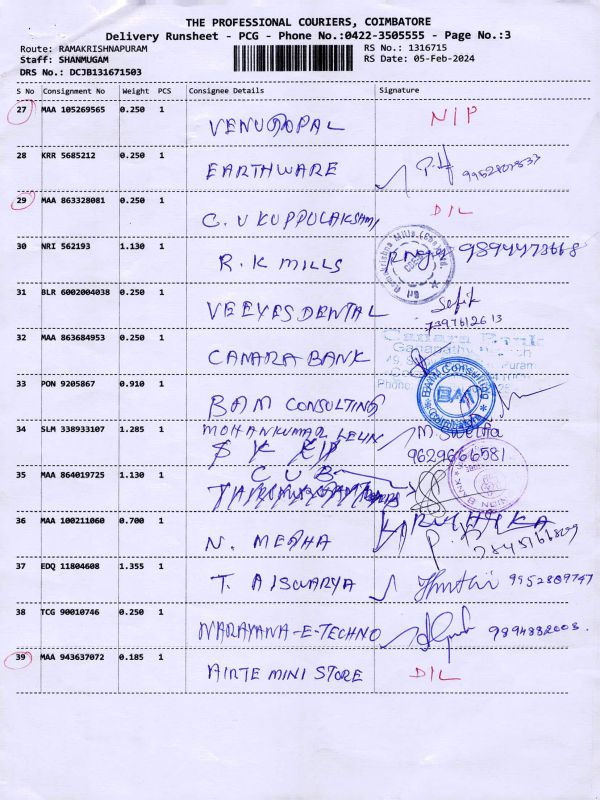 THE PROFESSIONAL COURIERS, COIMBATORE
Delivery Runsheet - PCG - Phone No.:0422-3505555 - Page No.:3
Route: RAMAKRISHNAPURAM RS No.: 1316715
Staff: SHANMUGAM RS Date: 05-Feb-2024
DRS No.: DCJB131671503
S No Consignment No Weight PCS Consignee Details Signature
27 MAA 105269565 0.250 1 VENUGOPAL N/P
28 KRR 5685212 0.250 1 EARTHWARE
29 MAA 863328081 0.250 1 C. V KUPPULAKSHMI D/L
30 NRI 562193 1.130 1 R. K MILLS
31 BLR 6002004038 0.250 1 VEEYES DENTAL Sefik
7397612613
32 MAA 863684953 0.250 1 CANARA BANK
Canara Bank
33 PON 9205867 0.910 1 BAM CONSULTING
BAM Consulting
BAM
Coimbatore
34 SLM 338933107 1.285 1 MOHANKUMAR M. Swetha
9629666581
35 MAA 864019725 1.130 1 C U B
36 MAA 100211060 0.700 1 N. MEGHA
37 EDQ 11804608 1.355 1 T. AISWARYA 9952809747
38 TCG 90010746 0.250 1 NARAYANA-E-TECHNO
39 MAA 943637072 0.185 1 AIRTE MINI STORE D/L